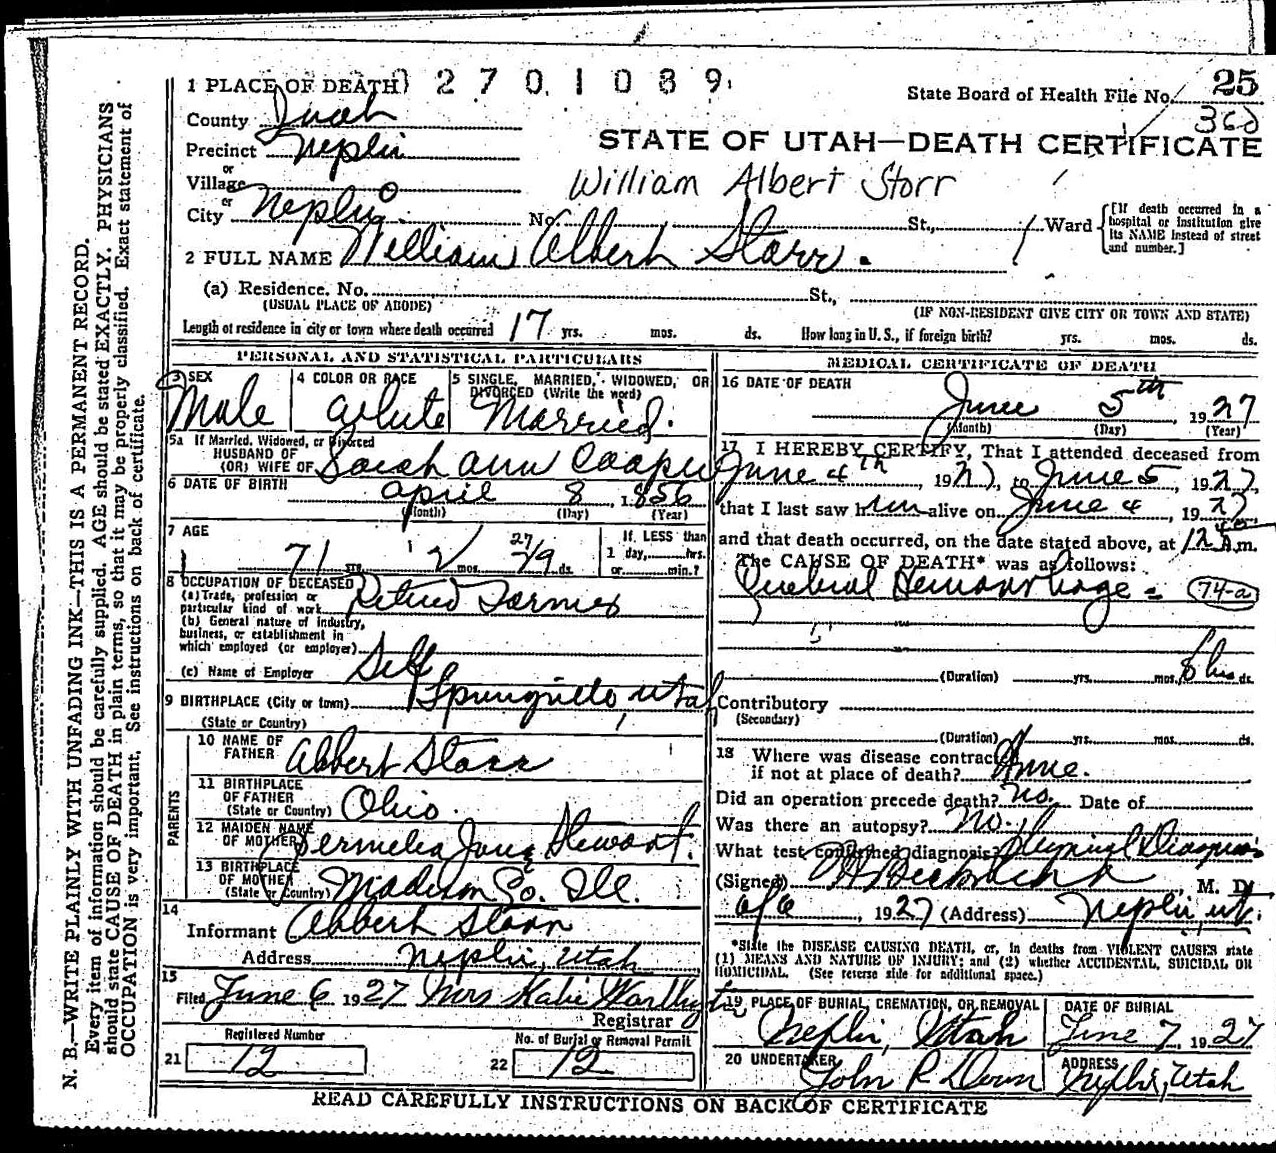 0 2 7 0 1 0 8 9
1 PLACE OF DEATH
State Board of Health File No. 25
360
County Juab
Precinct Nephi
STATE OF UTAH—DEATH CERTIFICATE
or
Village
William Albert Storr
or
City Nephi No. St., Ward
[If death occurred in a hospital or institution give its NAME instead of street and number.]
2 FULL NAME William Albert Storr.
(a) Residence. No. St.,
(USUAL PLACE OF ABODE) (IF NON-RESIDENT GIVE CITY OR TOWN AND STATE)
Length of residence in city or town where death occurred 17 yrs. mos. ds. How long in U. S., if foreign birth? yrs. mos. ds.
PERSONAL AND STATISTICAL PARTICULARS
3 SEX
Male
4 COLOR OR RACE
White
5 SINGLE, MARRIED, WIDOWED, OR DIVORCED (Write the word)
Married.
5a If Married, Widowed, or Divorced
HUSBAND OF
(OR) WIFE OF Sarah Ann Cooper
6 DATE OF BIRTH April 8 1856
(Month) (Day) (Year)
7 AGE
71 yrs. mos. 27 ds.
If LESS than
1 day, hrs.
or min.?
8 OCCUPATION OF DECEASED
(a) Trade, profession or
particular kind of work Retired Farmer
(b) General nature of industry,
business, or establishment in
which employed (or employer)
(c) Name of Employer Self
9 BIRTHPLACE (City or town) Springville Utah
(State or Country)
PARENTS
10 NAME OF
FATHER Albert Storr
11 BIRTHPLACE
OF FATHER
(State or Country) Ohio.
12 MAIDEN NAME
OF MOTHER Permelia Jane Stewart.
13 BIRTHPLACE
OF MOTHER
(State or Country) Madison Co. Ill.
14
Informant Albert Storr
Address Nephi, Utah
15
Filed June 6 1927 Mrs Katie
Registrar
Registered Number
21 12
No. of Burial or Removal Permit
22 12
MEDICAL CERTIFICATE OF DEATH
16 DATE OF DEATH
June 5th 1927
(Month) (Day) (Year)
17 I HEREBY CERTIFY, That I attended deceased from
June 4th, 1927, to June 5, 1927,
that I last saw him alive on June 4, 1927
and that death occurred, on the date stated above, at 12 A.m.
The CAUSE OF DEATH* was as follows:
Cerebral Hemorrhage 74-a
(Duration) yrs. mos. 8 hrs ds.
Contributory
(Secondary)
(Duration) yrs. mos. ds.
18 Where was disease contracted
if not at place of death? Home.
Did an operation precede death? No. Date of
Was there an autopsy? No.
What test confirmed diagnosis? Physical Diagnosis
(Signed) Beckstead, M. D.
6/6, 1927 (Address) Nephi, Ut.
*State the DISEASE CAUSING DEATH, or, in deaths from VIOLENT CAUSES state
(1) MEANS AND NATURE OF INJURY; and (2) whether ACCIDENTAL, SUICIDAL OR
HOMICIDAL. (See reverse side for additional space.)
19 PLACE OF BURIAL, CREMATION, OR REMOVAL
Nephi, Utah
DATE OF BURIAL
June 7, 1927
20 UNDERTAKER
John P.
ADDRESS
Nephi, Utah
READ CAREFULLY INSTRUCTIONS ON BACK OF CERTIFICATE
N. B.—WRITE PLAINLY WITH UNFADING INK—THIS IS A PERMANENT RECORD.
Every item of information should be carefully supplied. AGE should be stated EXACTLY. PHYSICIANS
should state CAUSE OF DEATH in plain terms, so that it may be properly classified. Exact statement of
OCCUPATION is very important. See instructions on back of certificate.